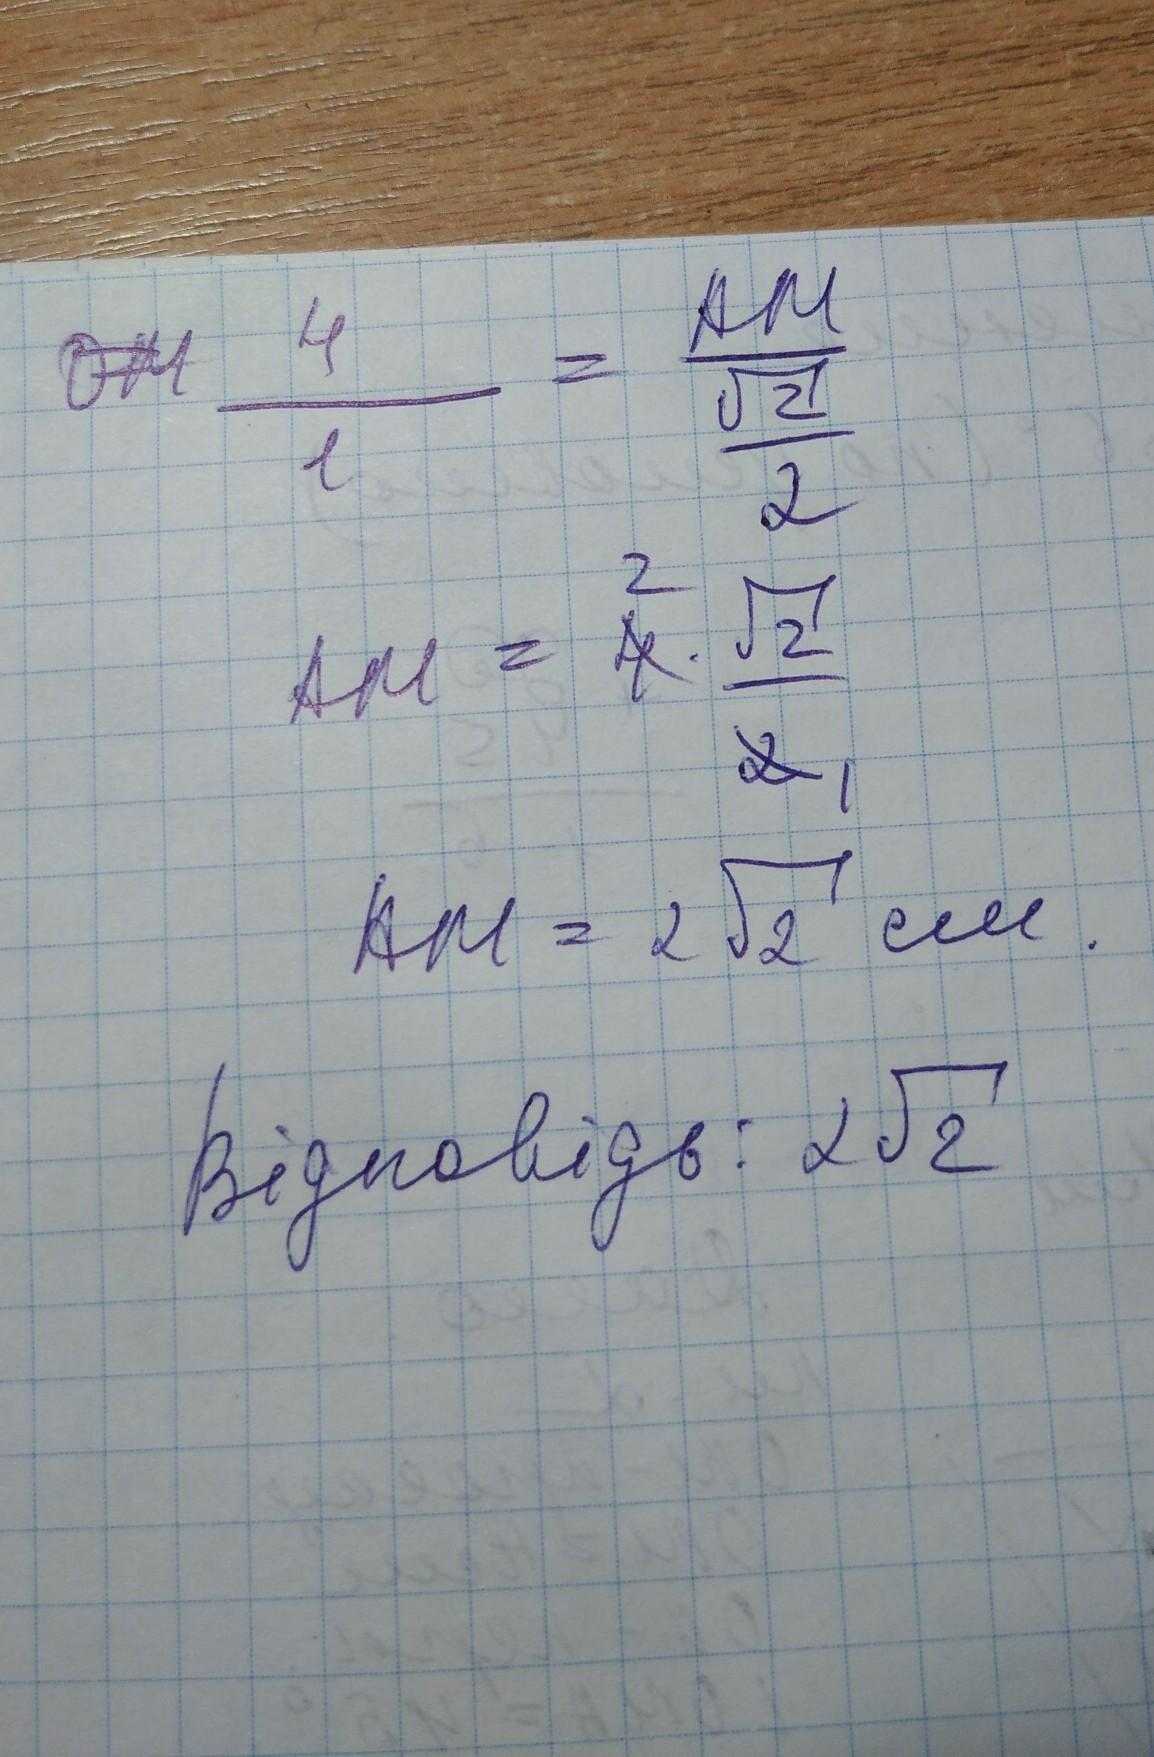 4/1 = AM/(√2/2)
AM = 4 · √2/2
2 1
AM = 2√2 см.
Відповідь: 2√2